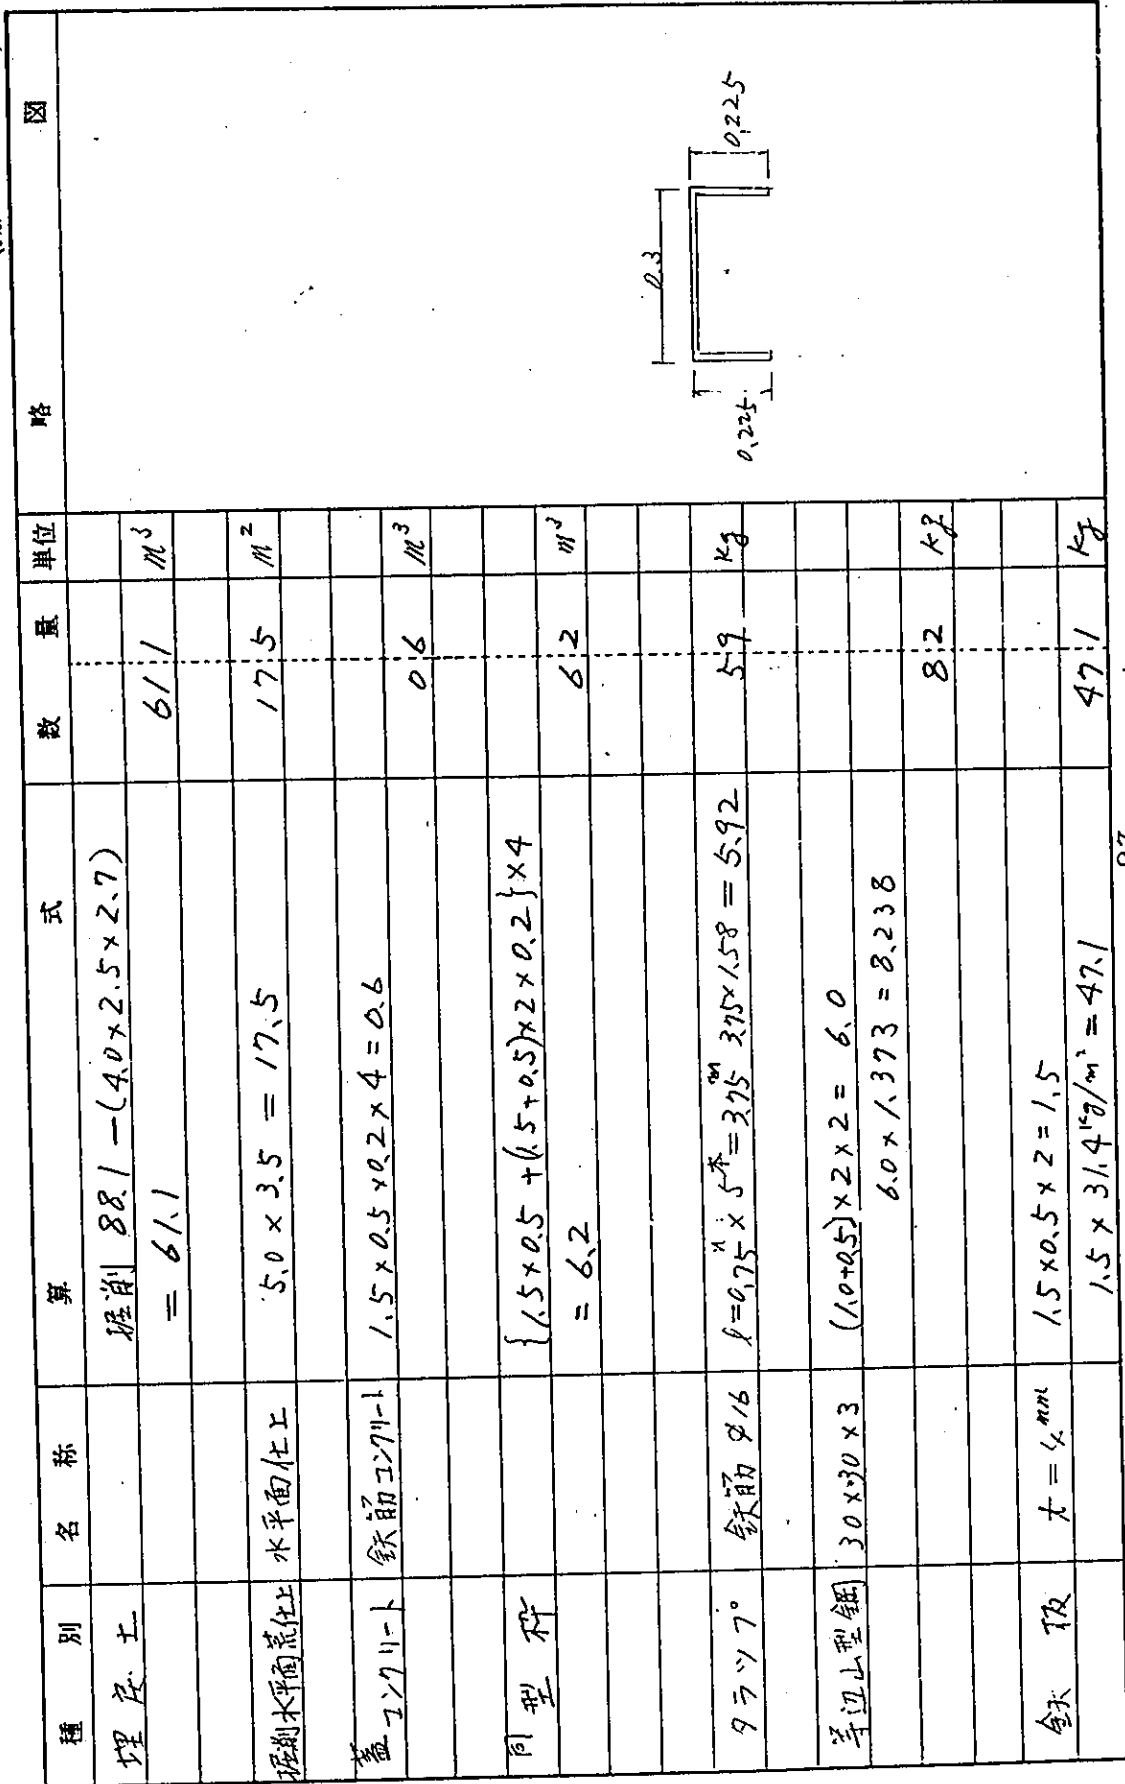 種別 名称 算式 数量 単位 略図
埋戻土 掘削 88.1 -(4.0×2.5×2.7)
= 61.1 61 1 m³
掘削水平面荒仕上 水平面仕上 5.0 × 3.5 = 17.5 17 5 m²
蓋コンクリート 鉄筋コンクリート 1.5 × 0.5 × 0.2 × 4 = 0.6 0 6 m³
同型枠 {1.5 × 0.5 + (1.5+0.5)×2 × 0.2} × 4
= 6.2 6 2 m³
タラップ 鉄筋 φ16 l=0.75 × 5本 = 3.75m 3.75×1.58 = 5.92 5 9 kg
0.3
0.225
0.225
等辺山型鋼 30×30×3 (1.0+0.5)×2×2 = 6.0
6.0 × 1.373 = 8.238 8 2 kg
鉄板 t=4mm 1.5×0.5×2=1.5
1.5 × 31.4kg/m² = 47.1 47 1 kg